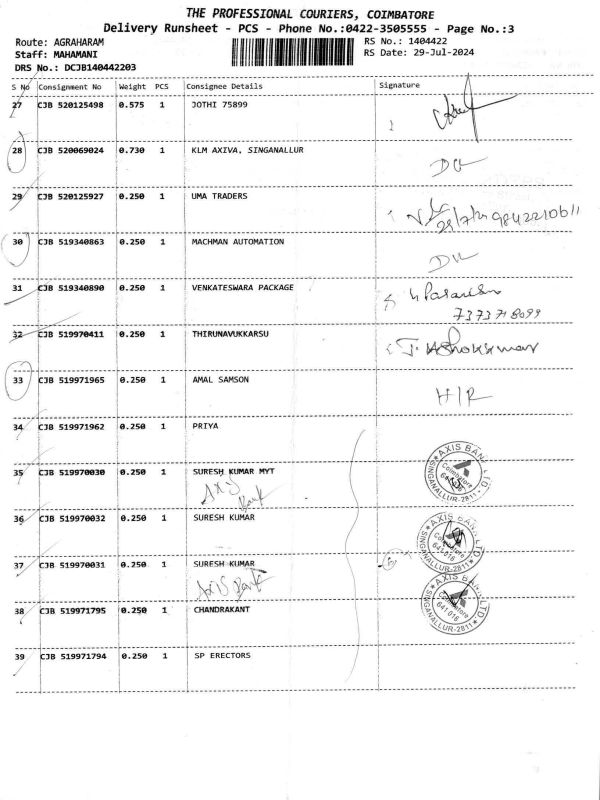 THE PROFESSIONAL COURIERS, COIMBATORE
Delivery Runsheet - PCS - Phone No.:0422-3505555 - Page No.:3
Route: AGRAHARAM
RS No.: 1404422
Staff: MAHAMANI
RS Date: 29-Jul-2024
DRS No.: DCJB140442203
S No Consignment No Weight PCS Consignee Details Signature
27 CJB 520125498 0.575 1 JOTHI 75899
28 CJB 520069024 0.730 1 KLM AXIVA, SINGANALLUR
29 CJB 520125927 0.250 1 UMA TRADERS
29/7/24 9842210611
30 CJB 519340863 0.250 1 MACHMAN AUTOMATION
31 CJB 519340890 0.250 1 VENKATESWARA PACKAGE
7373718099
32 CJB 519970411 0.250 1 THIRUNAVUKKARSU T. Ashokkumar
33 CJB 519971965 0.250 1 AMAL SAMSON
H/R
34 CJB 519971962 0.250 1 PRIYA
35 CJB 519970030 0.250 1 SURESH KUMAR MYT
Axis Bank
AXIS BANK LTD
Coimbatore
641 016
SINGANALLUR-2811
36 CJB 519970032 0.250 1 SURESH KUMAR
AXIS BANK LTD
Coimbatore
641 016
SINGANALLUR-2811
37 CJB 519970031 0.250 1 SURESH KUMAR
Axis Bank
AXIS BANK LTD
Coimbatore
641 016
SINGANALLUR-2811
38 CJB 519971795 0.250 1 CHANDRAKANT
39 CJB 519971794 0.250 1 SP ERECTORS